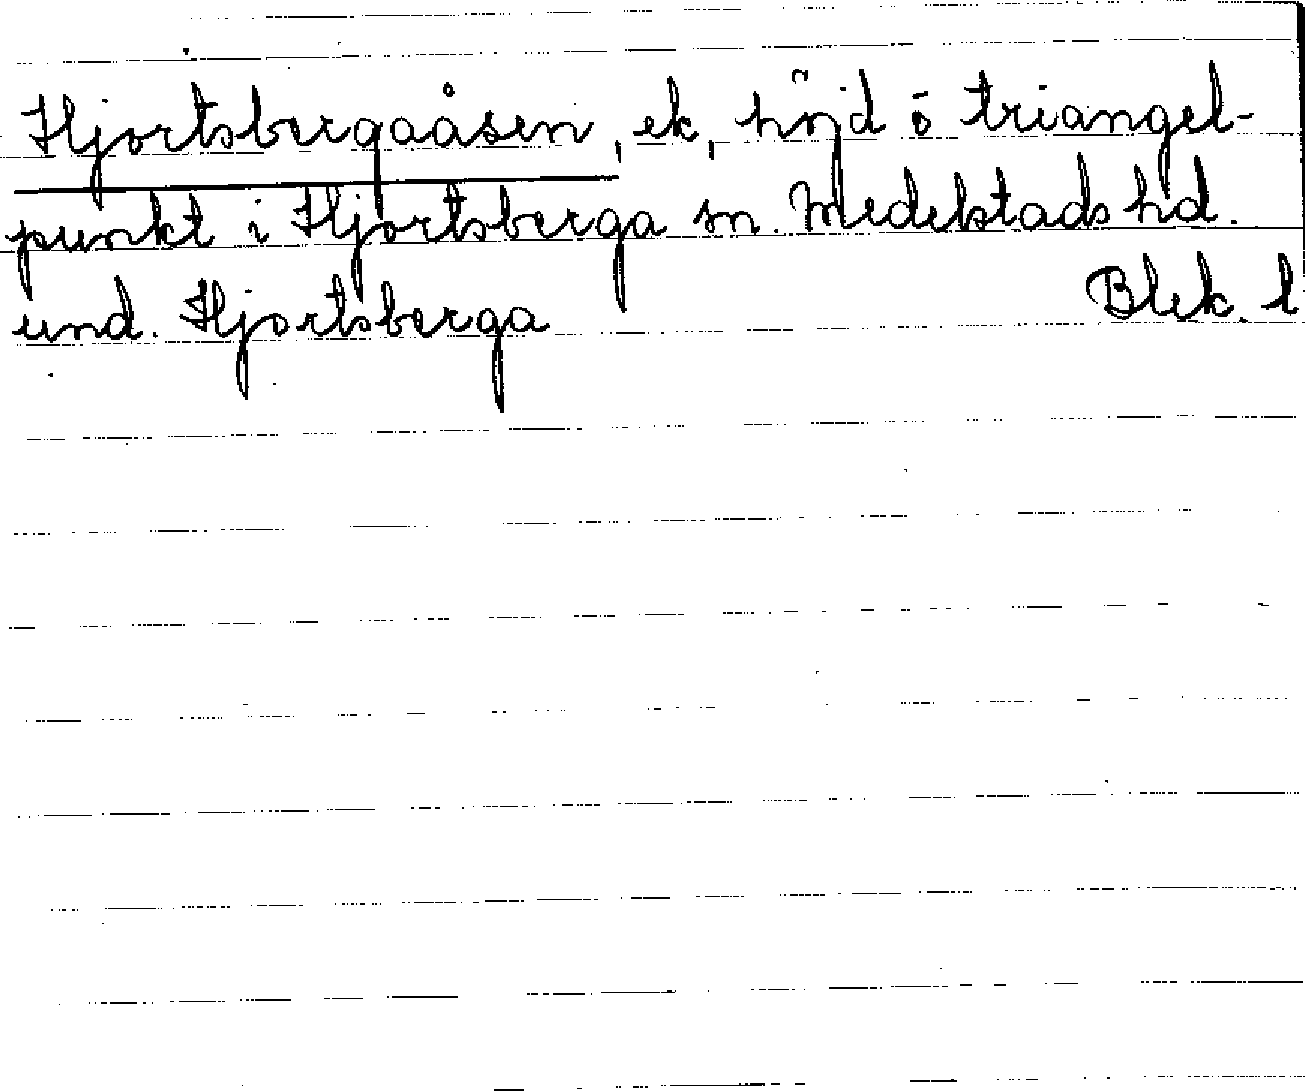 Hjortsbergaåsen, ek, höjd o triangel-
punkt i Hjortsberga sn. Medelstads hd.
und. Hjortsberga Blek. l